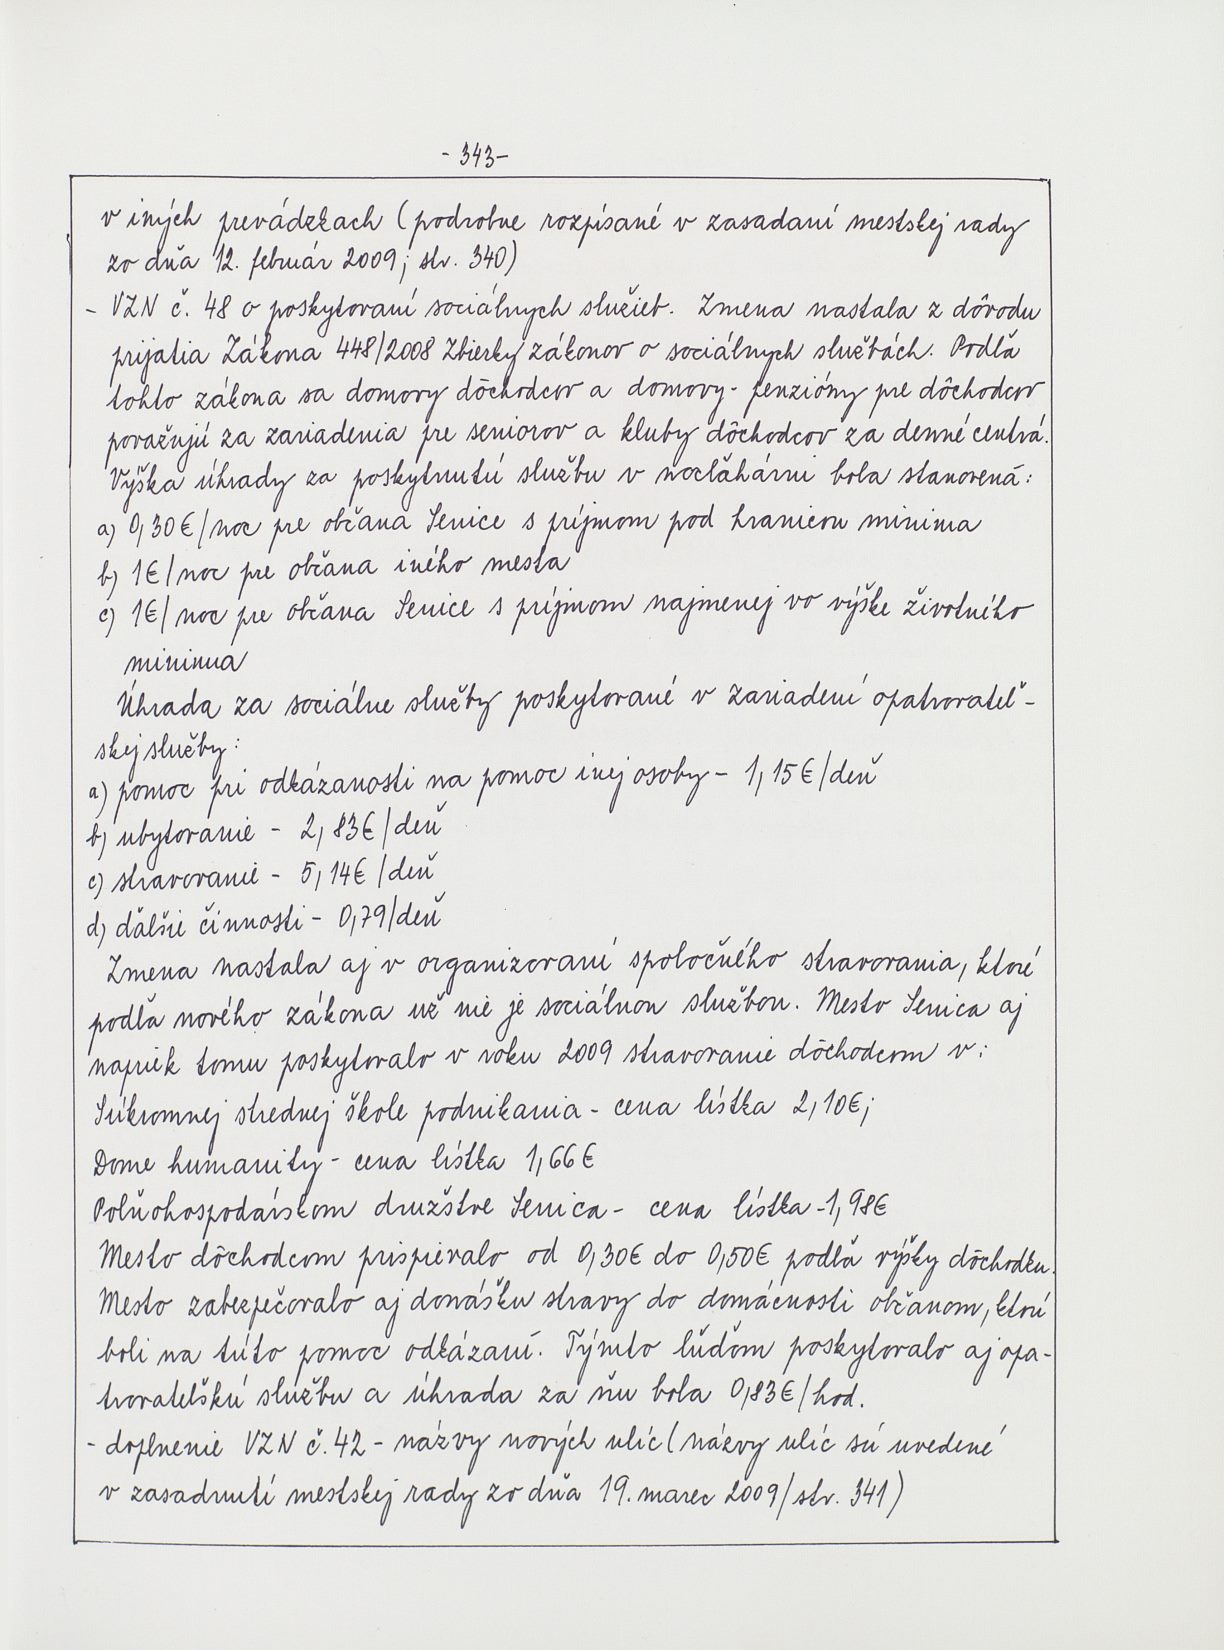 - 343-
v iných prevádzkach (podrobne rozpísané v zasadaní mestskej rady
zo dňa 12. február 2009; str. 340)
- VZN č. 48 o poskytovaní sociálnych služieb. Zmena nastala z dôvodu
prijatia Zákona 448/2008 Zbierky zákonov o sociálnych službách. Podľa
tohto zákona sa domovy dôchodcov a domovy- penzióny pre dôchodcov
považujú za zariadenia pre seniorov a kluby dôchodcov za denné centrá.
Výška úhrady za poskytnutú službu v nocľahárni bola stanovená:
a) 0,30€/noc pre občana Senice s príjmom pod hranicou minima
b) 1€/noc pre občana iného mesta
c) 1€/noc pre občana Senice s príjmom najmenej vo výške životného
minima
Úhrada za sociálne služby poskytované v zariadení opatrovateľ-
skej služby:
a) pomoc pri odkázanosti na pomoc inej osoby - 1,15€/deň
b) ubytovanie - 2,83€/deň
c) stravovanie - 5,14€/deň
d) ďalšie činnosti - 0,79/deň
Zmena nastala aj v organizovaní spoločného stravovania, ktoré
podľa nového zákona už nie je sociálnou službou. Mesto Senica aj
napriek tomu poskytovalo v roku 2009 stravovanie dôchodcom v:
Súkromnej strednej škole podnikania - cena lístka 2,10€;
Dome humanity - cena lístka 1,66€
Poľnohospodárskom družstve Senica - cena lístka -1,98€
Mesto dôchodcom prispievalo od 0,30€ do 0,50€ podľa výšky dôchodku.
Mesto zabezpečovalo aj donášku stravy do domácnosti občanom, ktorí
boli na túto pomoc odkázaní. Týmto ľuďom poskytovalo aj opa-
trovateľskú službu a úhrada za ňu bola 0,83€/hod.
- doplnenie VZN č. 42 - názvy nových ulíc (názvy ulíc sú uvedené
v zasadnutí mestskej rady zo dňa 19. marec 2009/str. 341)